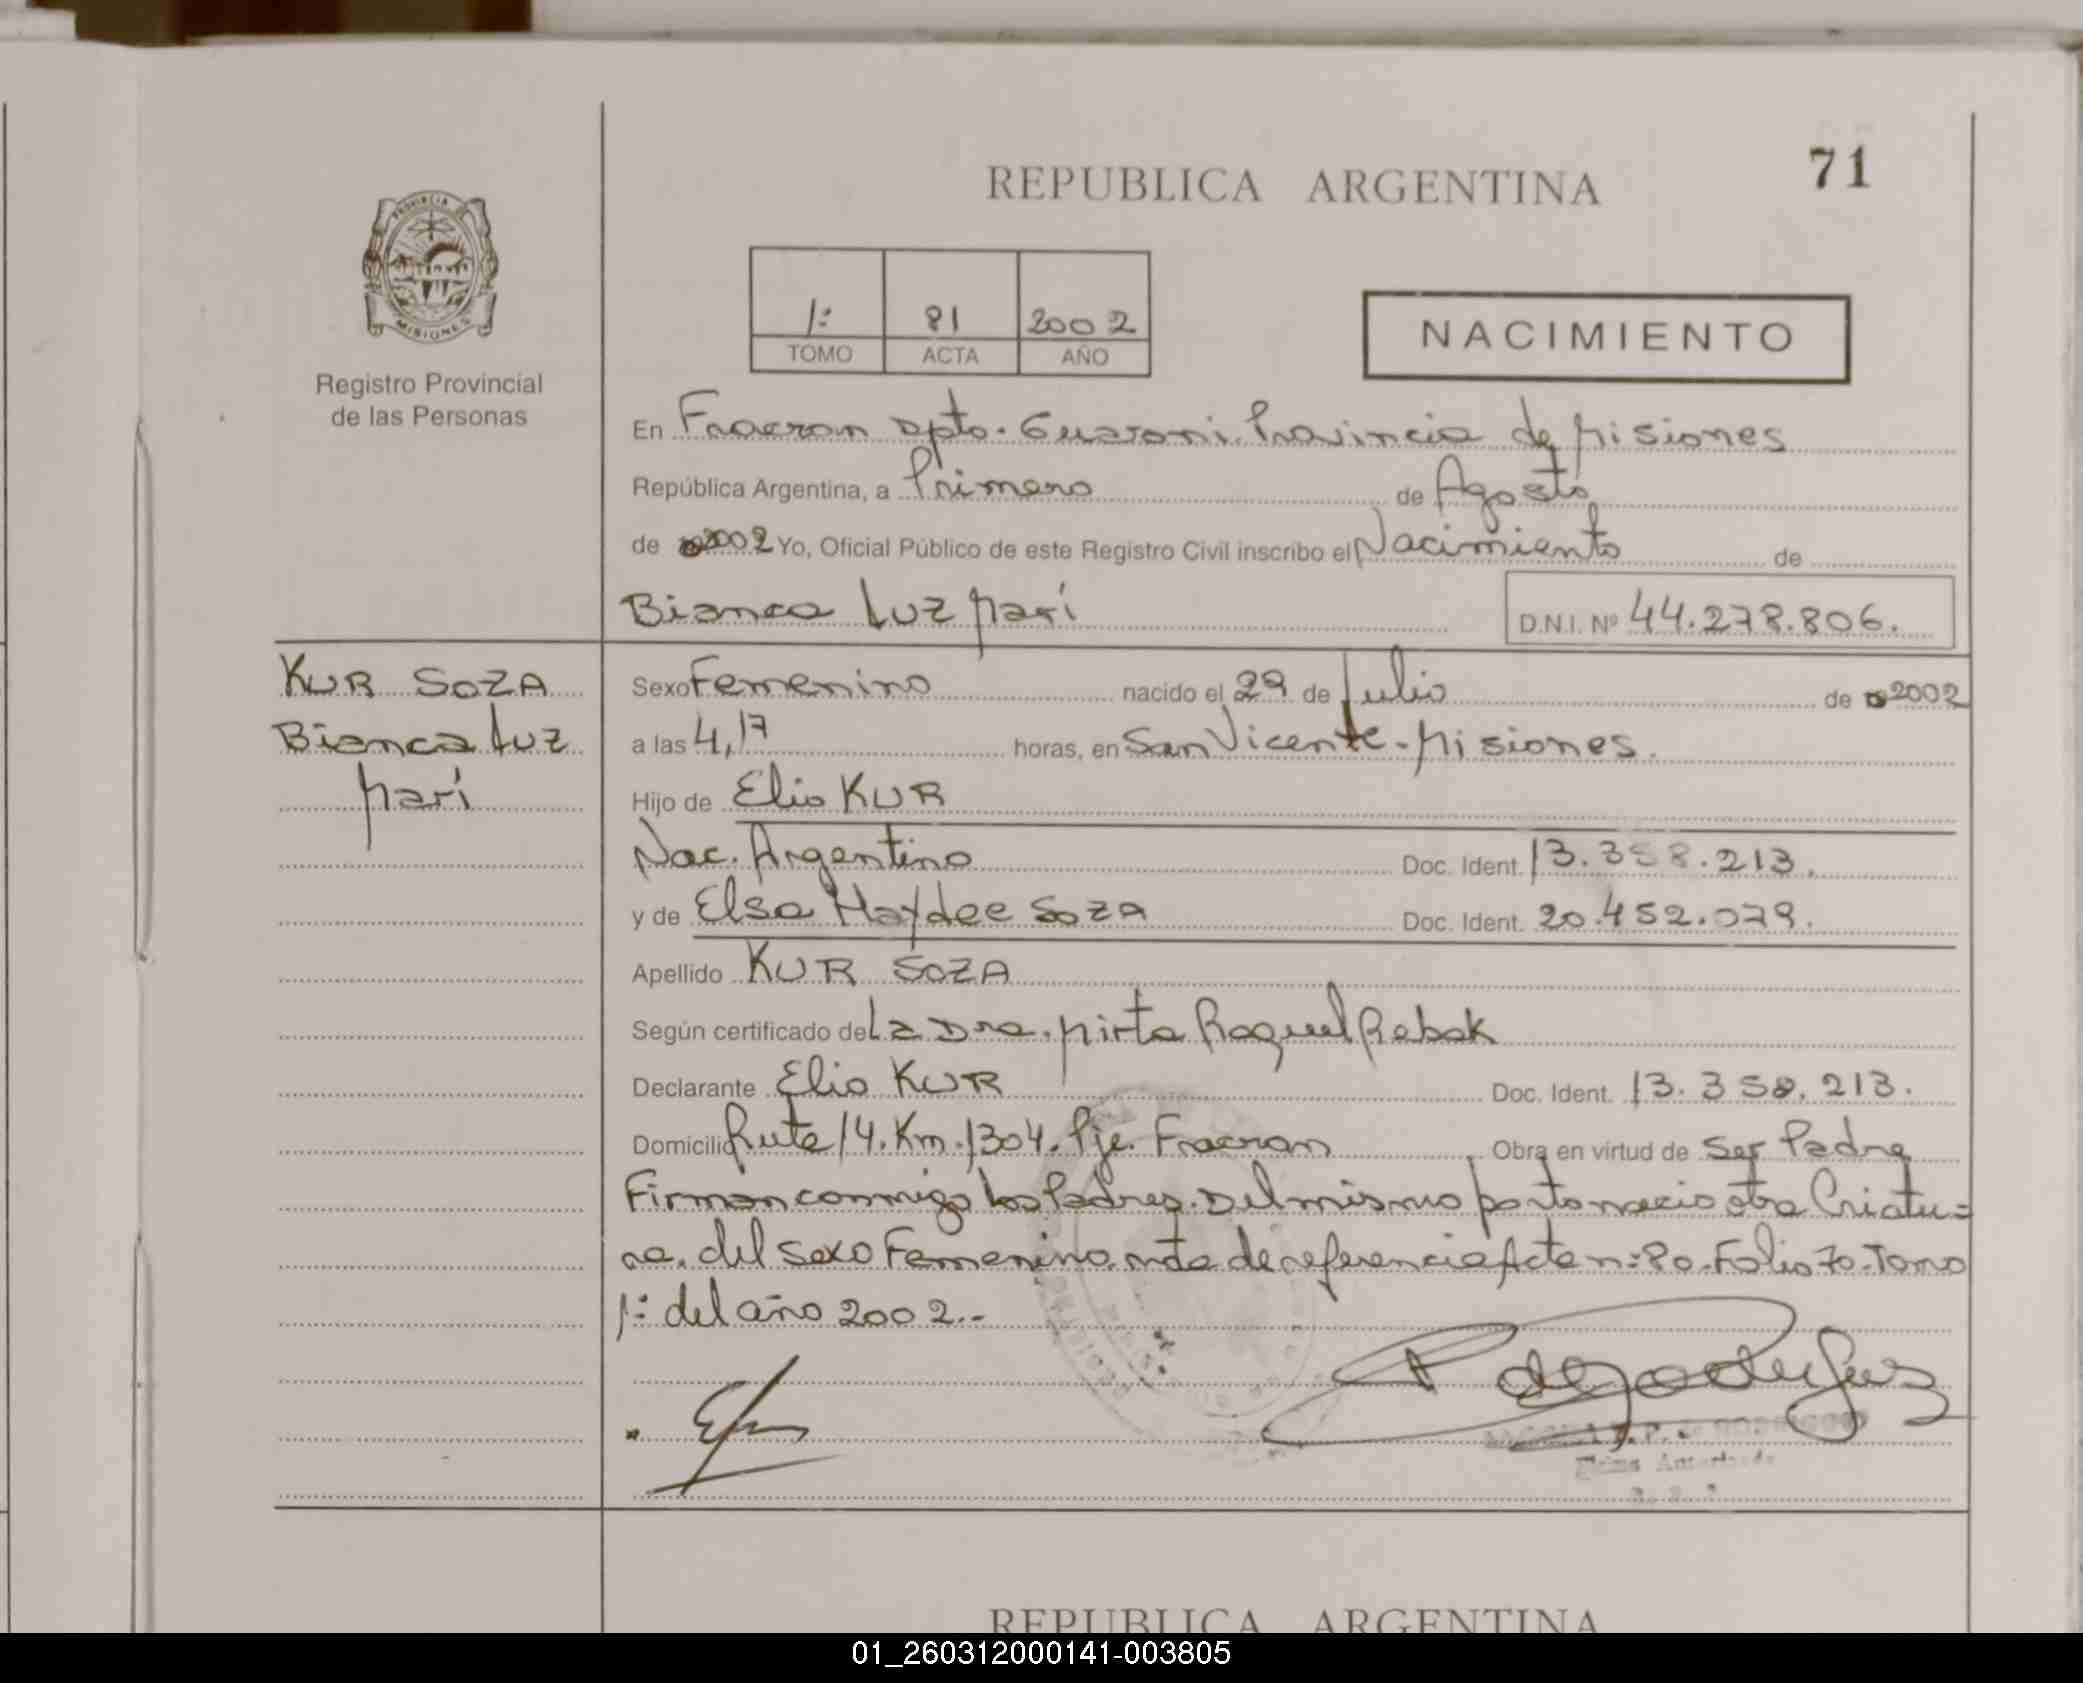 71
REPUBLICA ARGENTINA
PROVINCIA DE
MISIONES
Registro Provincial
de las Personas
1:
81
2002
TOMO
ACTA
AÑO
NACIMIENTO
En Fracran Dpto. Guarani. Provincia de Misiones
República Argentina, a Primero de Agosto
de 2002 Yo, Oficial Público de este Registro Civil inscribo el Nacimiento de
Bianca Luz Marí
D.N.I. Nº 44.278.806.
KUR SOZA
Bianca Luz
Marí
Sexo Femenino nacido el 29 de Julio de 2002
a las 4,17 horas, en San Vicente - Misiones.
Hijo de Elio KUR
Nac. Argentino Doc. Ident. 13.358.213.
y de Elsa Haydee SOZA Doc. Ident. 20.452.079.
Apellido KUR SOZA
Según certificado de La Dra. Mirta Raquel Rebak
Declarante Elio KUR Doc. Ident. 13.358.213.
Domicilio Ruta 14. Km. 1304. Pje. Fracran Obra en virtud de Ser Padre
Firman conmigo los Padres. Del mismo parto nacio otra Criatu=
ra. del sexo Femenino. nota de referencia Acta n: 80. Folio 70. Tomo
1: del año 2002.-
REPUBLICA ARGENTINA
01_260312000141-003805